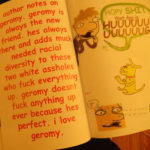 author notes on
geromy. geromy is
always the new
friend. hes always
there and adds much
needed racial
diversity to these
two white assholes
who fuck everything
up. geromy doesnt
fuck anything up
ever because hes
perfect. i love
geromy.
HOLY SHIT